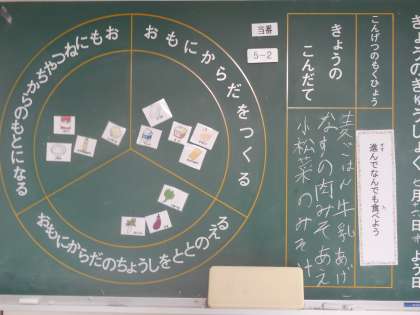 きょうのきゅうしょく 月 日 よう日
こんげつのもくひょう
進んでなんでも食べよう
きょうの
こんだて
麦ごはん 牛乳 あげ
なすの肉みそあえ
小松菜のみそ汁
当番
5-2
おもにからだをつくる
おもにねつやちからのもとになる
おもにからだのちょうしをととのえる